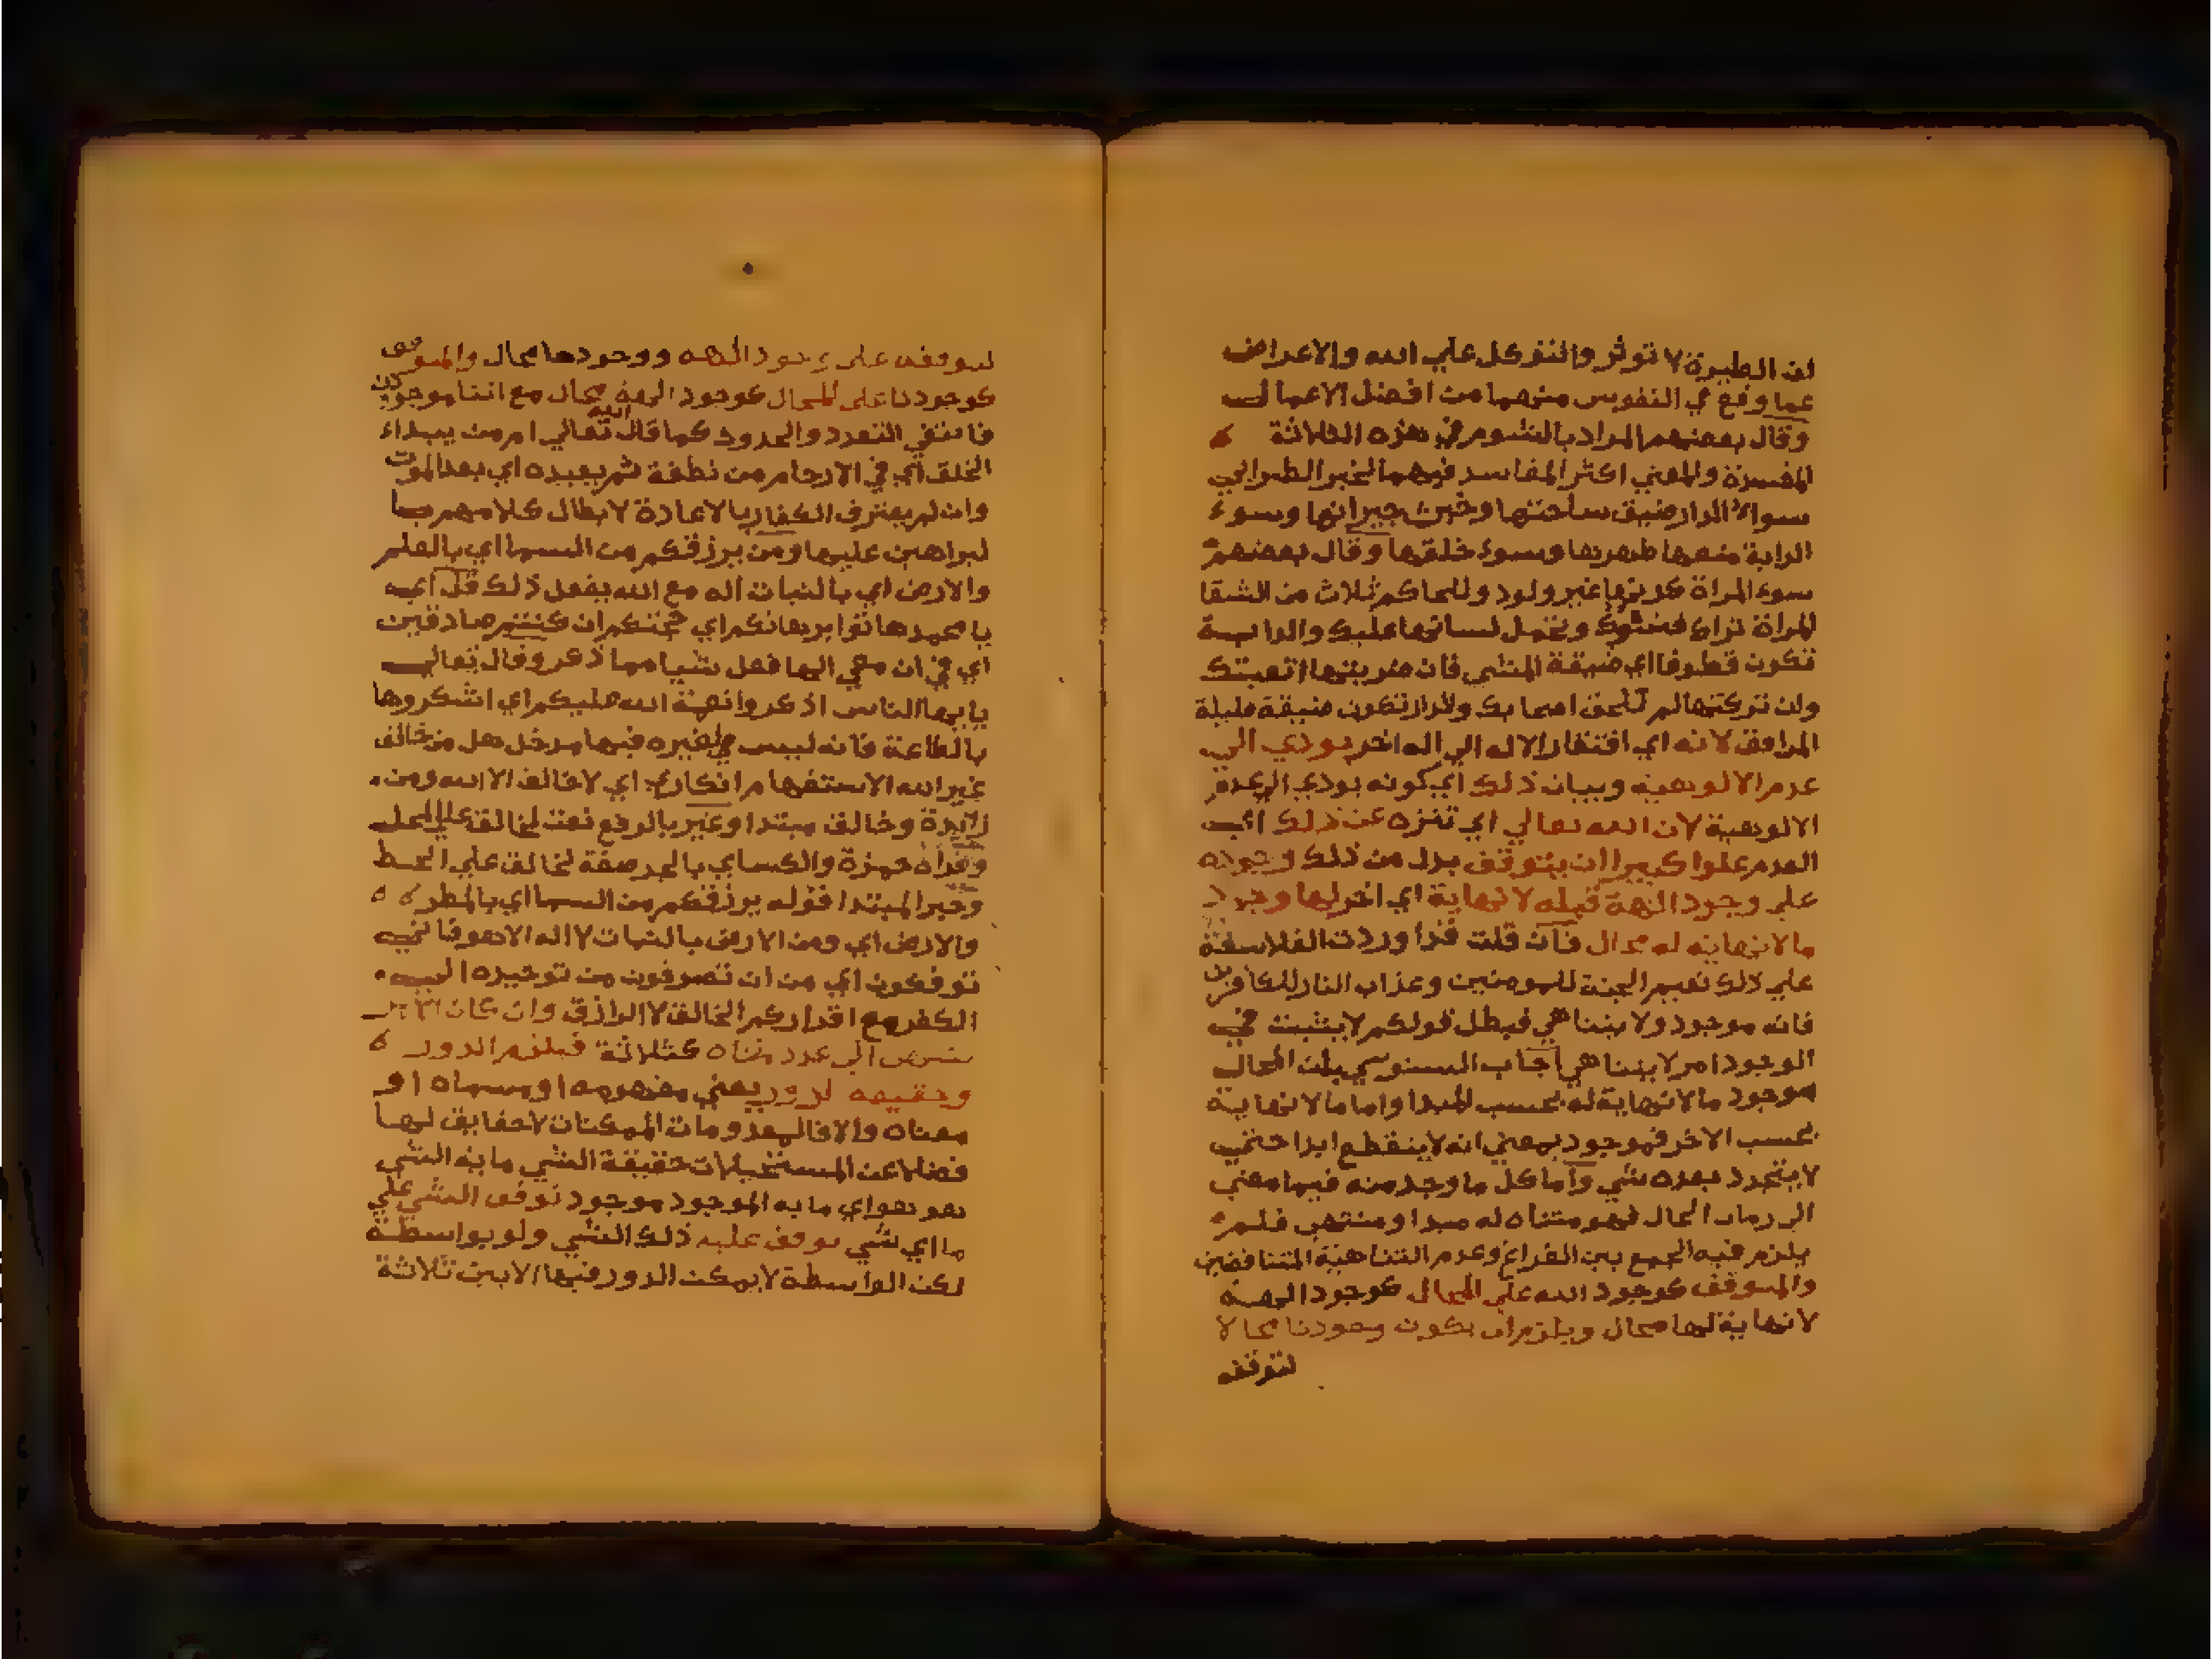 لان الطيرة لا توثر والتوكل علي الله والاعراض
عما وقع في النفوس منهما من افضل الاعمال
وقال بعضهم المراد بالشوم في هذه الثلاثة
المفسرة والمعني اكثر المفاسد فيهما لخبر الطبراني
سواء الدار ضيق ساحتها وخبث جيرانها وسوء
الدابة منعها ظهرها وسوء خلقها وقال بعضهم
سوء المراة كونها غير ولود وللحاكم ثلاث من الشقا
المراة تراها فتسوك وتحمل لسانها عليك والدابة
تكون قطوفا اي ضيقة المشي فان ضربتها اتعبتك
وان تركتها لم تلحق اصحابك والدار تكون ضيقة قليلة
المرافق لانه اي افتقار الاله الي اله اخر يودي الي
عدم الالوهية وبيان ذلك اي كونه يودي الي عدم
الالوهية لان الله تعالي اي تنزه عن ذلك اي
العدم علوا كبيرا ان يتوقف بدل من ذلك وجوده
علي وجود الهة قبله لا نهاية اي اخر لها وجود
ما لا نهاية له محال فان قلت قد اوردت الفلاسفة
علي ذلك نعيم الجنة للمومنين وعذاب النار للكافرين
فانه موجود ولا يتناهي فبطل قولكم لا يثبت في
الوجود امر لا يتناهي اجاب السنوسي بان المحال
موجود ما لا نهاية له بحسب المبدا واما ما لا نهاية
بحسب الاخر فهو موجود بمعني انه لا ينقطع ابدا حتي
لا يتجدد بعده شي واما كل ما وجد منه فيما مضي
الي زمان الحال فهو متناه له مبدا ومنتهي فلم
يلزم فيه الجمع بين الفراغ وعدم التناهية المتنافقين
والمتوقف كوجود الله علي المحال كوجود الهة
لا نهاية لها محال ويلزم ان يكون وجودنا محالا
لتوقفه
لتوقفه علي وجود الهه ووجودها محال والمتوقف
كوجودنا علي المحال كوجود الهة محال مع اننا موجودين
فانتفي التعدد والحدود كما قال الله تعالي امن يبداء
الخلق اي في الارحام من نطفة ثم يعيده اي بعد الموت
وان لم يعترف الكفار بالاعادة لابطال كلامهم با
لبراهين عليها ومن يرزقكم من السما اي بالعلم
والارض اي بالنبات اله مع الله يفعل ذلك قل اي
يا محمد هاتوا برهانكم اي حجتكم ان كنتم صادقين
اي في ان معي الها فعل شيا مما ذكر وقال تعالي
يا ايها الناس اذكروا نعمة الله عليكم اي اشكروها
بالطاعة فانه ليس لغيره فيها مدخل هل من خالق
غير الله الاستفهام انكاري اي لا خالق الا الله ومن
زائدة وخالق مبتدا وغير بالرفع نعت لخالق علي المحل
وقراه حمزة والكساي بالجر صفة لخالق علي الحط
وخبر المبتدا قوله يرزقكم من السما اي بالمطر
والارض اي ومن الارض بالنبات لا اله الا هو فاني
توفكون اي من ان تصرفون من توحيده الي
الكفر مع اقراركم الخالق لا الرازق وان كان
الي عدد متناه كثلاثة فيلزم الدور
وحقيقه لدور يعني مفهومه او مسماه او
معناه والا فالمعدومات الممكنات لا حقايق لها
فضلا عن المستحيلات حقيقة الشي ما به الشي
هو هو اي ما به الموجود موجود توقف الشي علي
ما اي شي توقف عليه ذلك الشي ولو بواسطة
لكن الواسطة لا يمكن الدور فيها الا بين ثلاثة